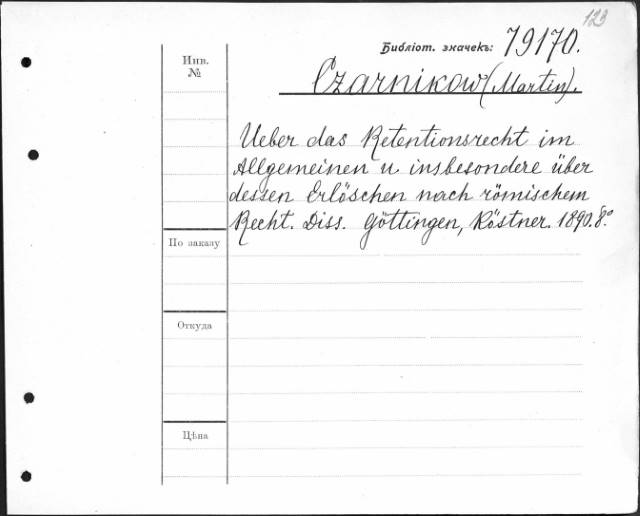 123
Библіот. значекъ: 79170.
Инв.
№
Czarnikow (Martin).
Ueber das Retentionsrecht im
Allgemeinen u insbesondere über
dessen Erlöschen nach römischem
Recht. Diss. Göttingen, Köstner. 1890. 8º.
По заказу
Откуда
Цѣна